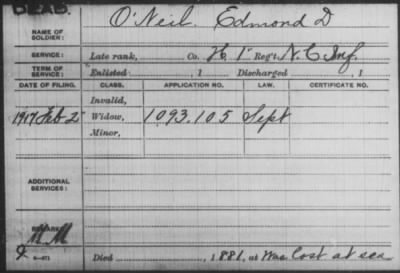 DEAD.
NAME OF SOLDIER: O'Neil. Edmond D
SERVICE: Late rank, Co. H 1" Reg't N. C. Inf.
TERM OF SERVICE: Enlisted , 1 Discharged , 1
DATE OF FILING. CLASS. APPLICATION NO. LAW. CERTIFICATE NO.
Invalid,
1917 Feb 2 Widow, 1093.105 Sept
Minor,
ADDITIONAL SERVICES:
REMARKS:
6-871
Died , 1881, at Was Lost at sea